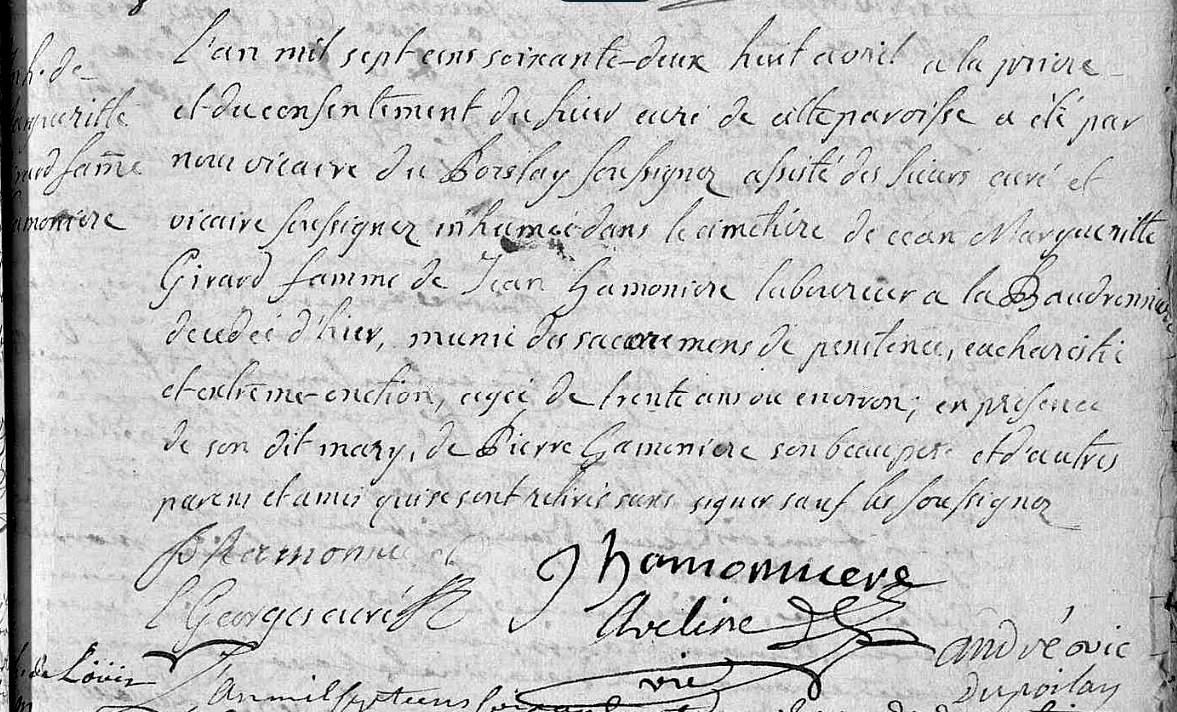 inh. de
Margueritte
Girard fame
hamoniere
L'an mil sept cens soixante-deux huit avril a la priere
et du consentement du sieur curé de cette paroisse a été par
nous vicaire du Poislay soussignez assisté des sieurs curé et
vicaire soussignez inhumée dans le cimetiere de cean Margueritte
Girard famme de Jean hamoniere laboureur a la Baudronniere
decedée d'hier, munie des sacremens de penitence, eucharistie
et extrême-onction, agée de trente ans ou environ; en présence
de son dit mary, de Pierre hamoniere son beaupere et d'autres
parens et amis qui se sont retirés sans signer sauf les soussignez
p hamonniere
J hamonniere
L Georges curé
Aveline
vic
andré vic
Dupoilay
de Loüis
L'an mil sept cens